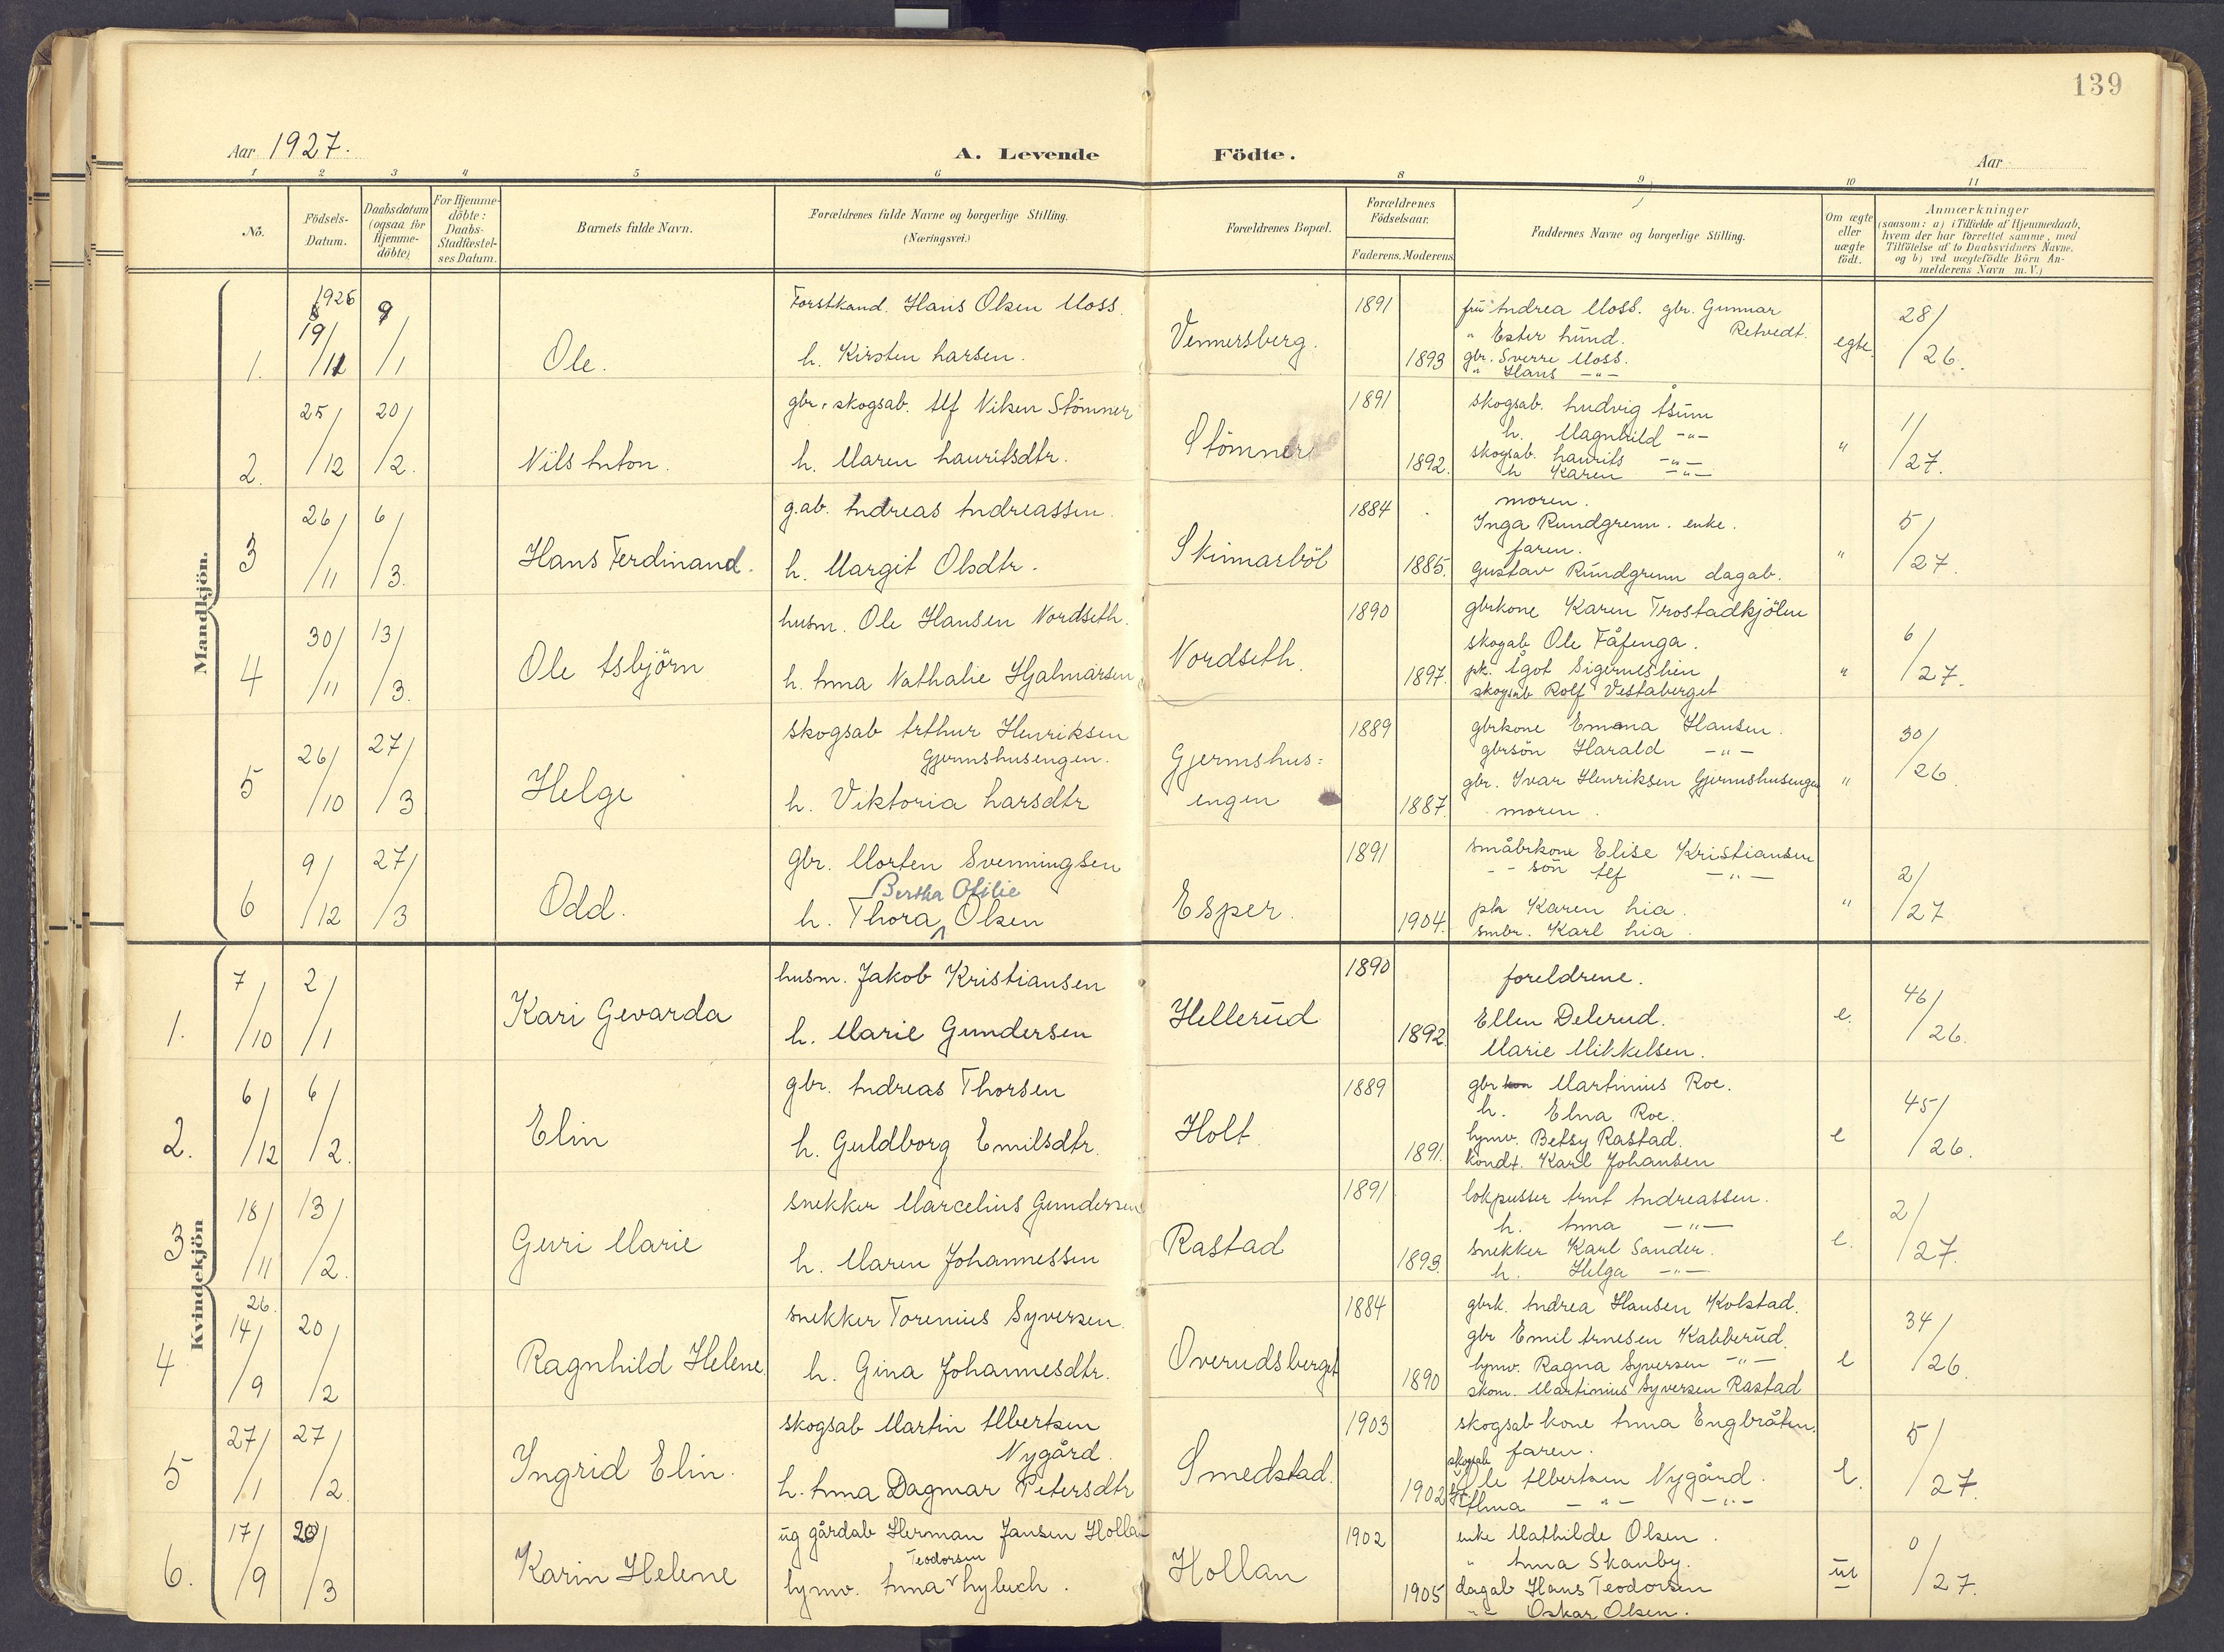 139
Aar 1927.
A. Levende Födte.
Aar
1 2 3 4 5 6 8 9 10 11
No.
Födsels-Datum.
Daabsdatum (ogsaa for Hjemme-döbte)
For Hjemme-döbte: Daabs-Stadfæstel-ses Datum.
Barnets fulde Navn.
Forældrenes fulde Navne og borgerlige Stilling.
(Næringsvei.)
Forældrenes Bopæl.
Forældrenes Födselsaar.
Faderens. Moderens.
Faddernes Navne og borgerlige Stilling.
Om ægte eller uægte födt.
Anmærkninger
(saasom: a) i Tilfælde af Hjemmedaab,
hvem der har forrettet samme, med
Tilföielse af to Daabsvidners Navne,
og b) ved uægtefödte Börn An-
melderens Navn m. V.)
Mandkjön.
1. 1926 19/11 9/1 Ole.
Forstkand. Hans Olsen Moss.
h. Kirsten Larsen.
Vennersberg.
1891
1893
fru Andrea Moss. gbr. Gunnar Retvedt.
" Ester Lund.
gbr. Sverre Moss.
" Hans -"-
egte.
28/26.
2. 25/12 20/2. Nils Anton.
gbr. skogsab. Alf Nilsen Stömner
h. Maren Lauritsdtr.
Stömner
1891
1892.
skogsab. Ludvig Åsum
h. Magnhild -"-
skogsab. Laurits -"-
h Karen -"-
"
1/27.
3 26/11 6/3. Hans Ferdinand.
g.ab. Andreas Andreassen.
h. Margit Olsdtr.
Skinnarböl
1884
1885.
moren.
Inga Rundgrenn. enke.
faren.
Gustav Rundgrenn dagab.
"
5/27.
4 30/11 13/3. Ole Asbjörn
husm. Ole Hansen Nordseth.
h. Anna Nathalie Hjalmarsen
Nordseth.
1890
1897.
gbrkone Karen Trostadkjölen
skogab Ole Fåfenga.
pk. Ågot Sigerneslien
skogsab Rolf Vestaberget
"
6/27.
5 26/10 27/3 Helge
skogsab Arthur Henriksen
Gjermshusengen.
h. Viktoria Larsdtr
Gjermshus=
engen
1889
1887.
gbrkone Emma Hansen.
gbrsön Harald -"-
gbr. Ivar Henriksen Gjermshusengen
moren.
"
30/26.
6 9/12 27/3 Odd.
gbr. Morten Svenningsen
Bertha Otilie
h. Thora Olsen
Esper.
1891
1904.
småbrkone Elise Kristiansen
-- sön Alf -"-
pk Karen Lia.
smbr. Karl Lia.
"
2/27
Kvindekjön
1. 7/10 2/1 Kari Gevarda
husm. Jakob Kristiansen
h. Marie Gundersen
Hellerud
1890
1892.
foreldrene.
Ellen Delerud.
Marie Mikkelsen.
e.
46/26.
2. 6/12 6/2. Elin
gbr. Andreas Thorsen
h. Guldborg Emilsdtr.
Holt.
1889
1891.
gbr kon Martinius Roe.
h. Elna Roe.
tjmv. Betsy Rastad.
kondt. Karl Johansen
e
45/26.
3 18/11 13/2. Guri Marie
snekker Marcelius Gundersen
h. Maren Johannessen
Rastad
1891.
1893.
lokpusser Arnt Andreassen.
h. Anna -"-
snekker Karl Sander.
h. Helga -"-
e.
2/27.
4 26. 14/9 20/2 Ragnhild Helene.
snekker Torenius Syversen.
h. Gina Johannesdtr.
Overudsberget
1884
1890
gbrk. Andrea Hansen Kolstad.
gbr Emil Arnesen Kabberud.
tjmv. Ragna Syversen -"-
skom. Martinius Syversen Rastad
e
34/26.
5 27/1 27/2. Ingrid Elin.
skogsab Martin Albertsen
Nygård.
h. Anna Dagmar Petersdtr
Smedstad.
1903
1902
skogsab kone Anna Engbråten.
faren.
skogsab Ole Albertsen Nygård.
Alma -"- -"-
e.
5/27.
6. 17/9 20/3 Karin Helene
ug gårdab Herman Jansen Hollan
Teodorsen
tjmv. Anna Nybuch.
Hollan
1902
1905
enke Mathilde Olsen.
" Anna Skanby.
dagab Hans Teodorsen
-"- Oskar Olsen.
0/27.